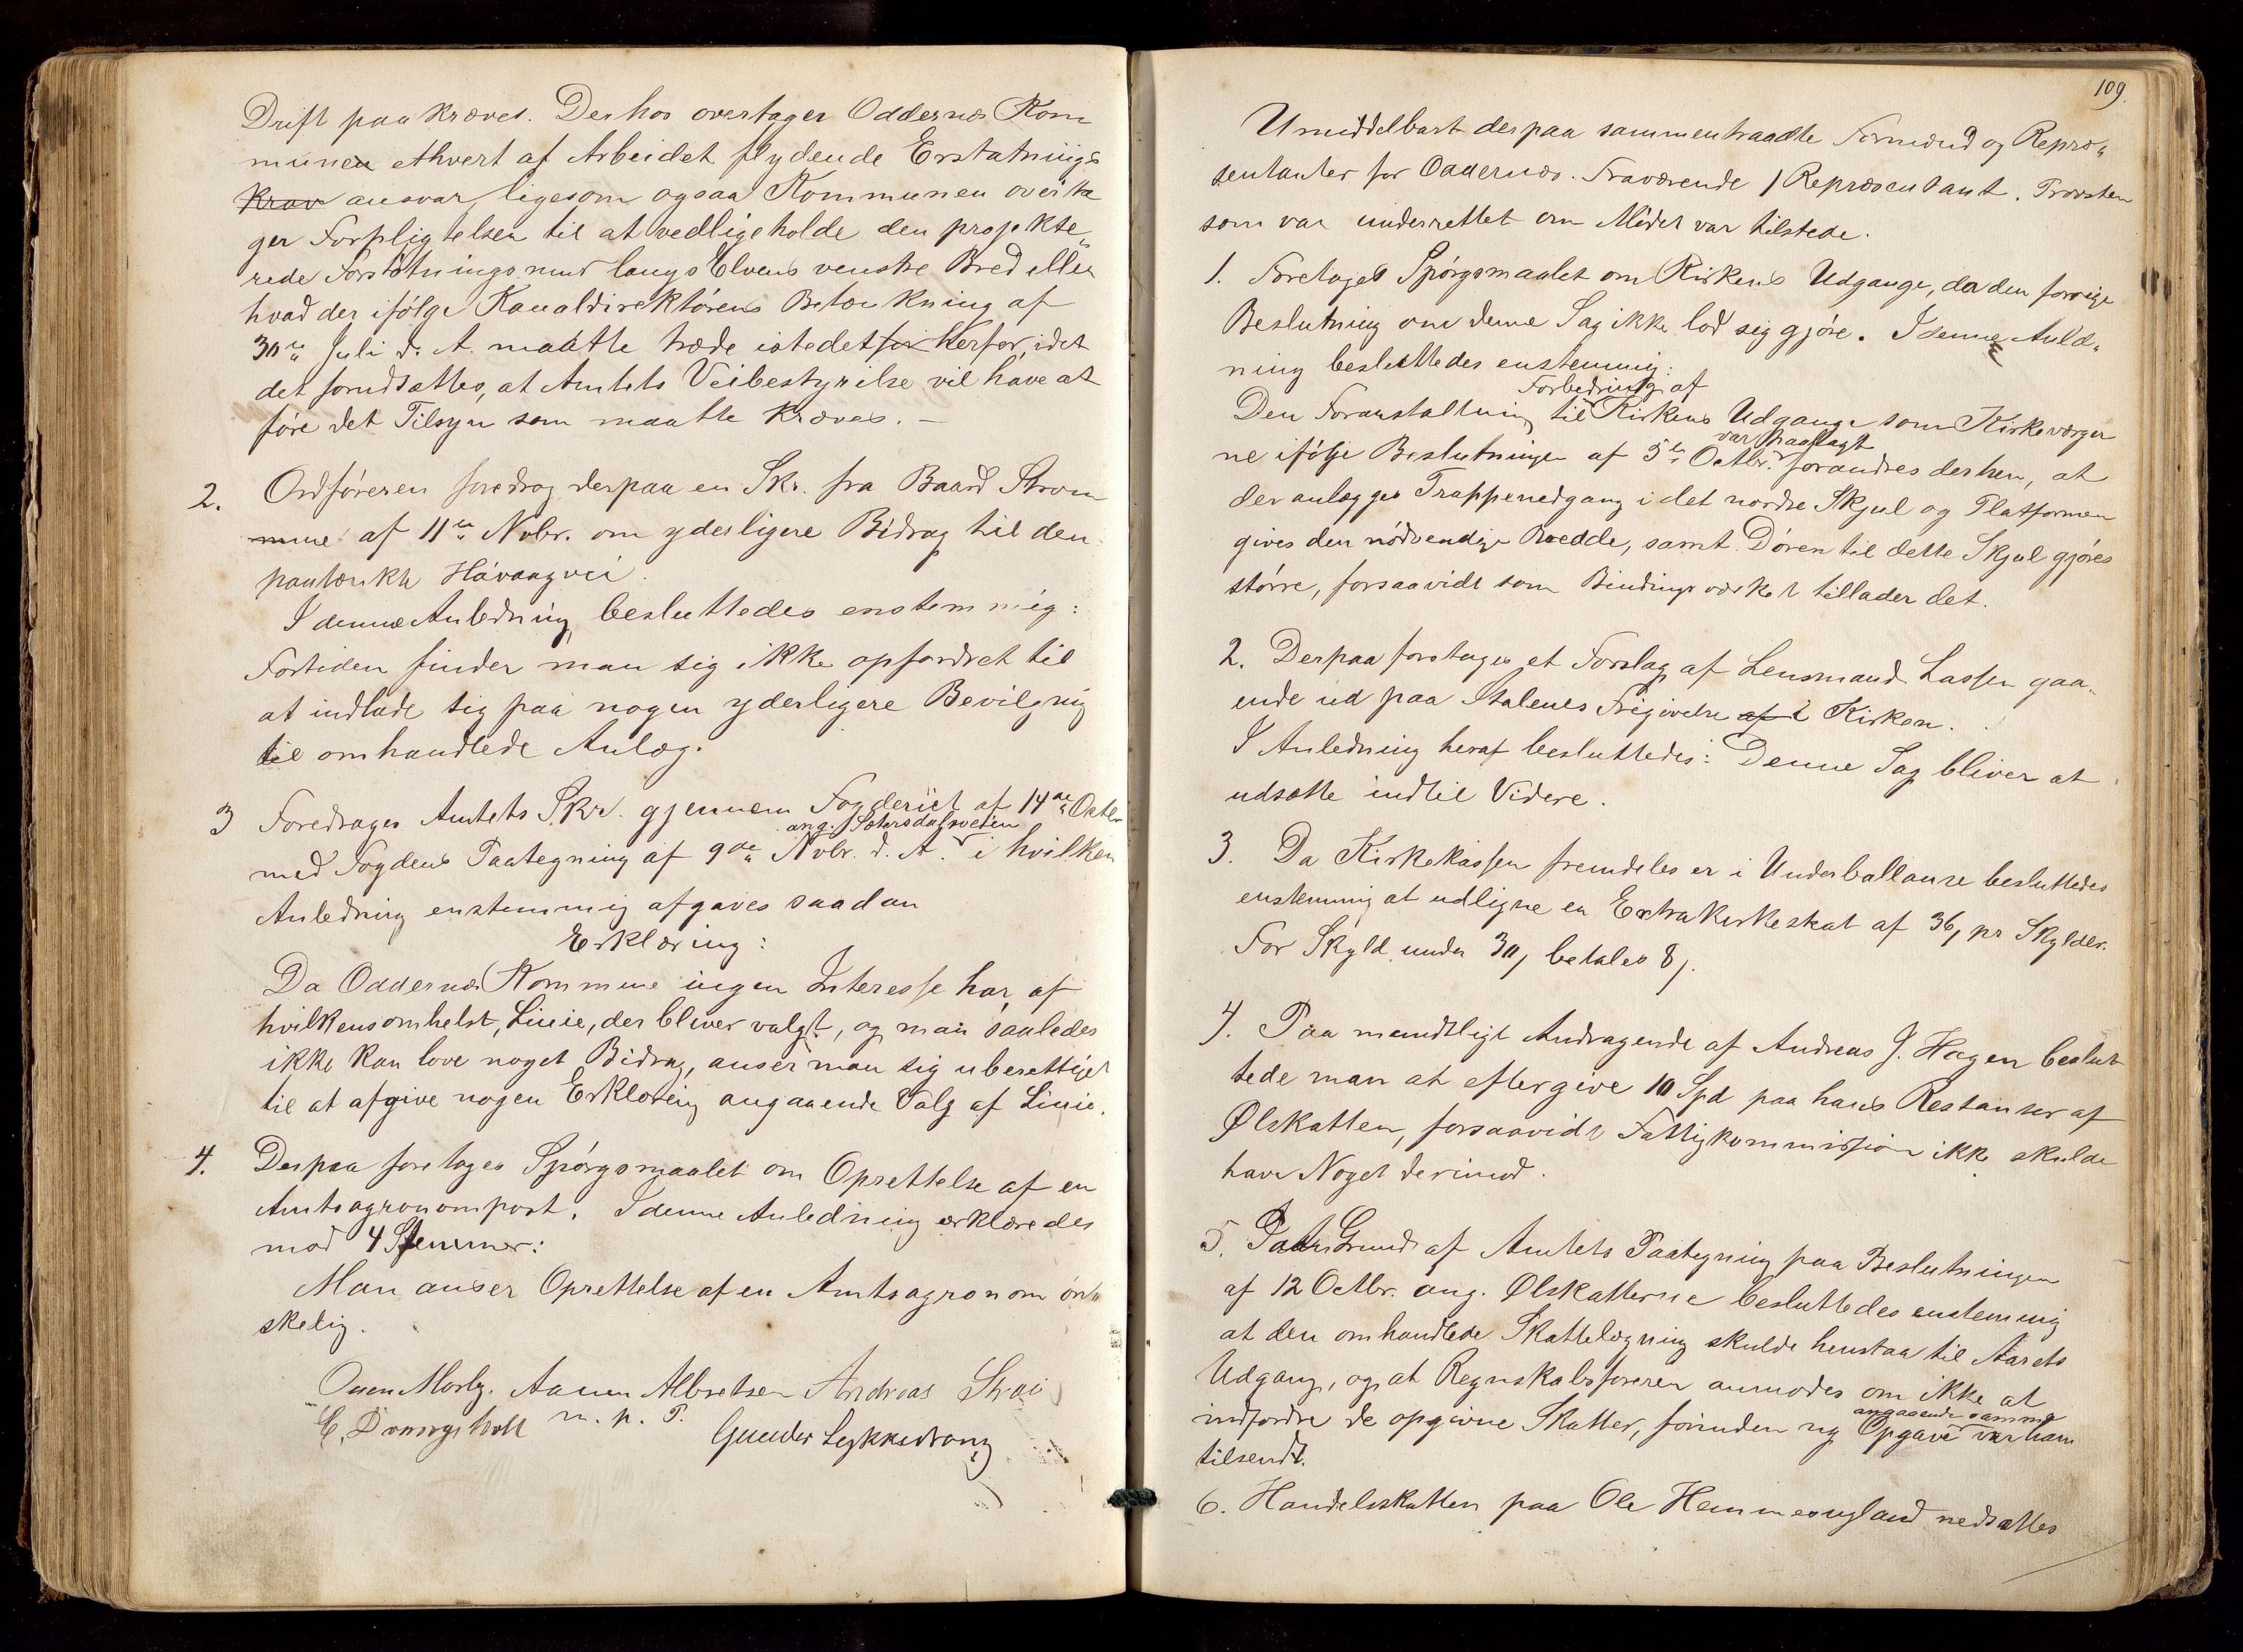 Drift paa kræves. Derhos overtager Oddernes Kom
munen ethvert af Arbeidet flydende Erstatnings
krav ansvar, ligesom ogsaa Kommunen overta
ger Forpligtelsen til at vedligeholde den projekte„
rede Forstøtningsmur langs Elvens venstre Bred eller
hvad der ifølge Kanaldirektørens Betænkning af
30te Juli d. A. maatte træde istedetfor herfor, idet
det forudsættes, at Amtets Veibestyrelse vil have at
føre det Tilsyn som maatte kræves. –
2. Ordføreren foredrog derpaa en Skr. fra Baard Strom
mme af 11te Nvbr. om yderligere Bidrag til den
paatænkte Haavaagvei.
I denne Anledning besluttedes enstemmig:
Fortiden finder man sig ikke opfordret til
at indlade sig paa nogen yderligere Bevilgnig
til omhandlede Anlæg.
3 Foredroges Amtets Skr. gjennem Fogderiet af 14de Octbr
ang. Sætersdalsveien
med Fogdens Paategning af 9de Nvbr. d. A. i hvilken
Anledning enstemmig afgaves saadan
Erklæring:
Da Oddernes Kommune ingen Interesse har af
hvilkensomhelst Linie, der bliver valgt, og man saaledes
ikke kan love noget Bidrag, anser man sig uberettiget
til at afgive nogen Erklæring angaaende Valg af Linie.
4. Derpaa foretoges Spørgsmaalet om Oprettelse af en
Amtsagronompost. I denne Anledning erklæredes
mod 4 Stemmer:
Man anser Oprettelse af en Amtsagronom øn„
skelig.
Aanen Albretsen Andreas Strai
m. p. P. Gunder Lykkedrang
109.
Umiddelbart derpaa sammentraadte Formænd og Repræ„
sentanter for Oddernes. Fraværende 1 Repræsentant. Provsten
som var underrettet om Mødet var tilstede.
1. Foretoges Spørgsmaalet om Kirkens Udgange, da den forrige
Beslutning om denne Sag ikke lod sig gjøre. I denne Anled„
ning besluttedes enstemmig:
Forbedring af
Den Foranstaltning til Kirkens Udgange som Kirkeværger
var paalagt
ne ifølge Beslutningen af 5te Octbr. forandres derhen, at
der anlægges Trappenedgang i det nordre Skjul og Platformen
gives den nødvendige Bredde, samt Døren til dette Skjul gjøres
større, forsaavidt som Bindingsværket tillader det.
2. Derpaa foretoges et Forslag af Lensmand Lassen gaa„
ende ud paa Stolenes Frigivelse af i Kirken.
I Anledning heraf besluttedes: Denne Sag bliver at
udsætte indtil Videre.
3. Da Kirkekassen fremdeles er i Underballanse besluttedes
enstemmig at udligne en Extrakirkeskat af 36/ pr Skyldr.
For Skyld under 30/ betales 8/.
4. Paa mundtligt Andragende af Andreas J. Hagen beslut
tede man at eftergive 10 Spd paa hans Restanser af
Ølskatten, forsaavidt Fattigkommission ikke skulde
have Noget derimod.
5. Paa Grund af Amtets Paategning paa Beslutningen
af 12 Octbr. ang. Ølskatterne besluttedes enstemmig
at den omhandlede Skattelægning skulde henstaa til Aarets
Udgang, og at Regnskabsføreren anmodes om ikke at
angaaende samme
indfordre de opgivne Skatter, førinden ny Opgave var ham
tilsendt.
6. Handelsskatten paa Ole Hemmesugland nedsattes